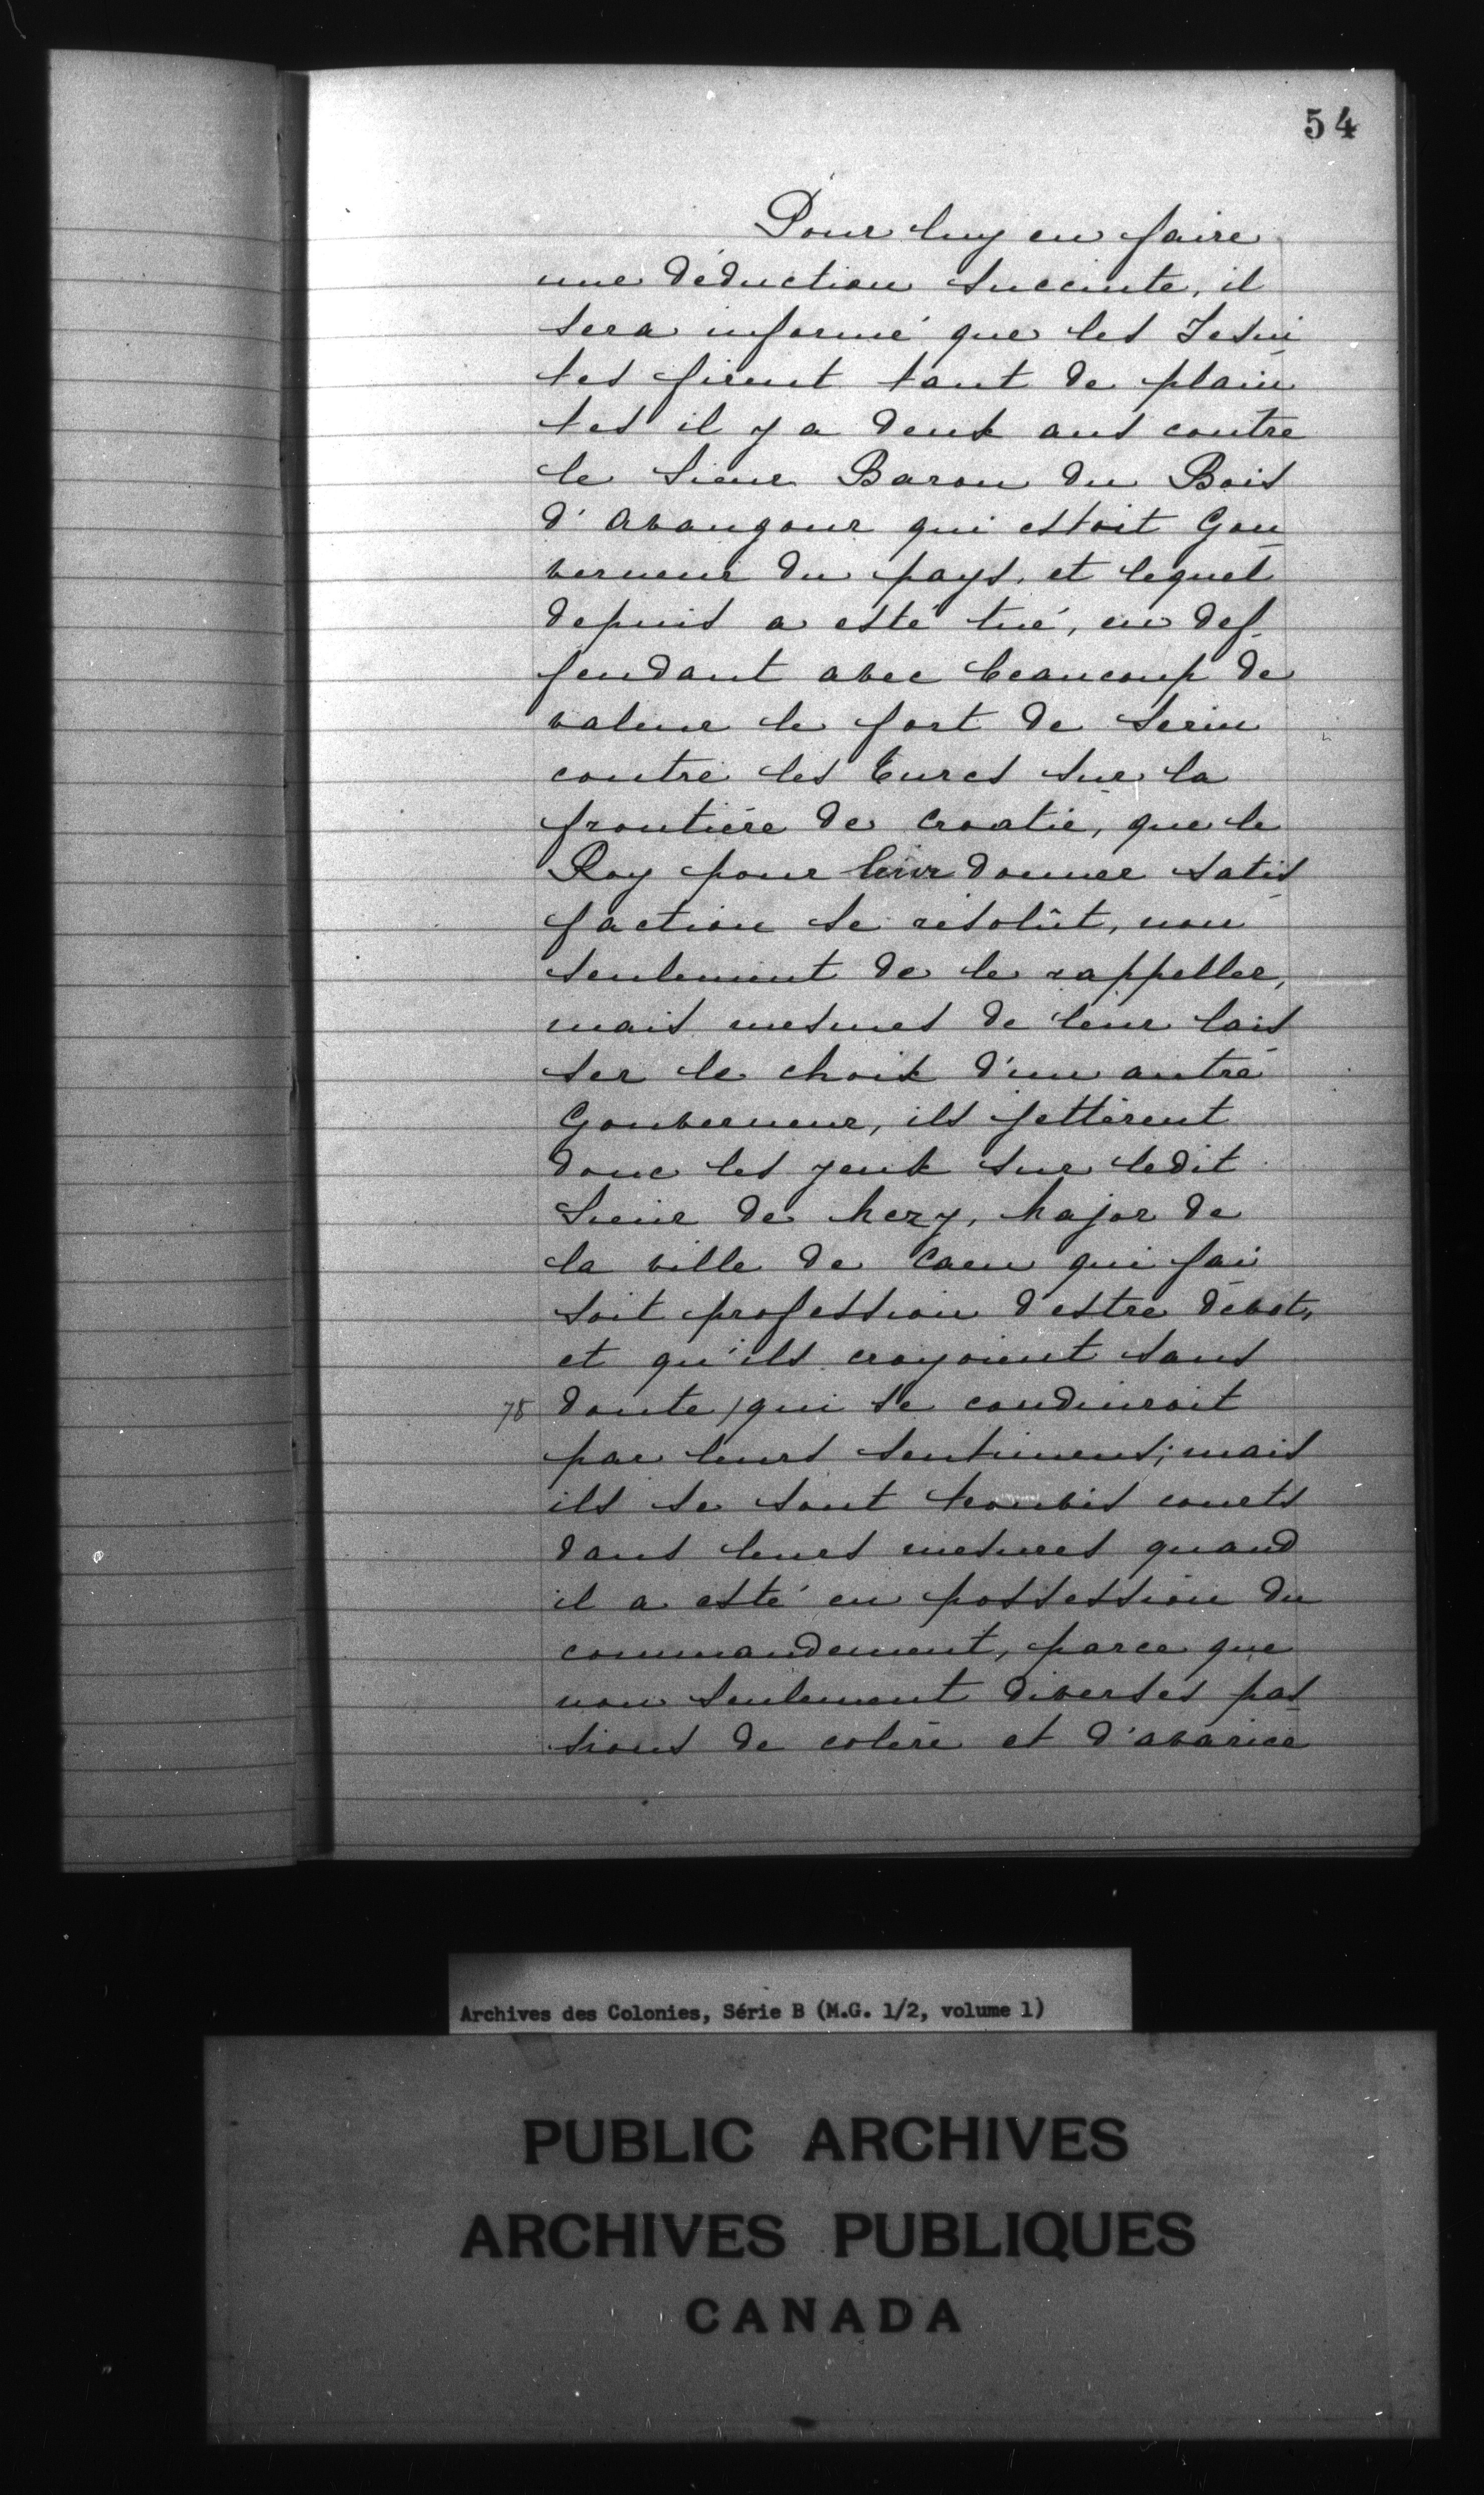 54
Pour luy en faire
une déduction succinte, il
sera informé que les Jesui
tes firent tant de plain
tes il y a deux ans contre
le Sieur Baron du Bois
d'Avangour qui estoit Gou
verneur du pays, et lequel
depuis a esté tué, en def
fendant avec beaucoup de
valeur le fort de Serin
contre les Turcs sur la
frontière de Croatie, que le
Roy pour leur donner satis
faction se résolût, non
seulement de le rappeller,
mais mesmes de leur lais
ser le choix d'un autre
Gouverneur, ils jettèrent
donc les yeux sur ledit
Sieur de Mezy, Major de
la ville de Caen qui fai
soit profession d'estre dévot,
et qu'ils croyoient sans
78 doute / qui se conduiroit
par leurs sentimens; mais
ils se sont trouvés courts
dans leurs mesures quand
il a esté en possession du
commandement, parce que
non seulement diverses pas
sions de colère et d'avarice
Archives des Colonies, Série B (M.G. 1/2, volume 1)
PUBLIC ARCHIVES
ARCHIVES PUBLIQUES
CANADA